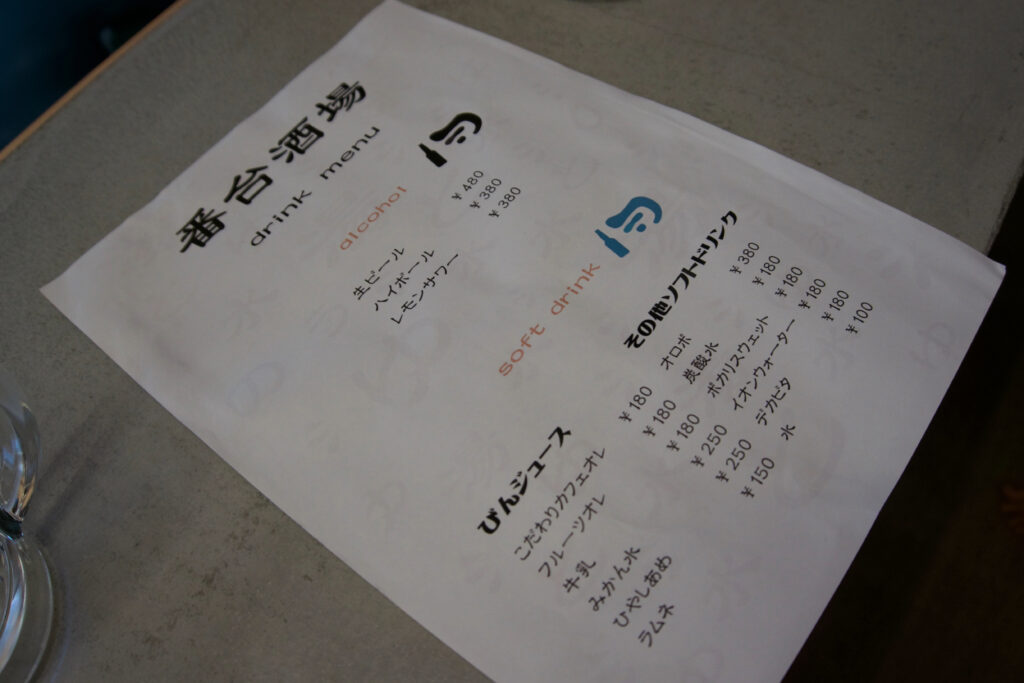 番台酒場
drink menu
alcohol
生ビール ¥480
ハイボール ¥380
レモンサワー ¥380
soft drink
びんジュース
こだわりカフェオレ ¥180
フルーツオレ ¥180
牛乳 ¥180
みかん水 ¥250
ひやしあめ ¥250
ラムネ ¥150
その他ソフトドリンク
オロポ ¥380
炭酸水 ¥180
ポカリスウェット ¥180
イオンウォーター ¥180
デカビタ ¥180
水 ¥100